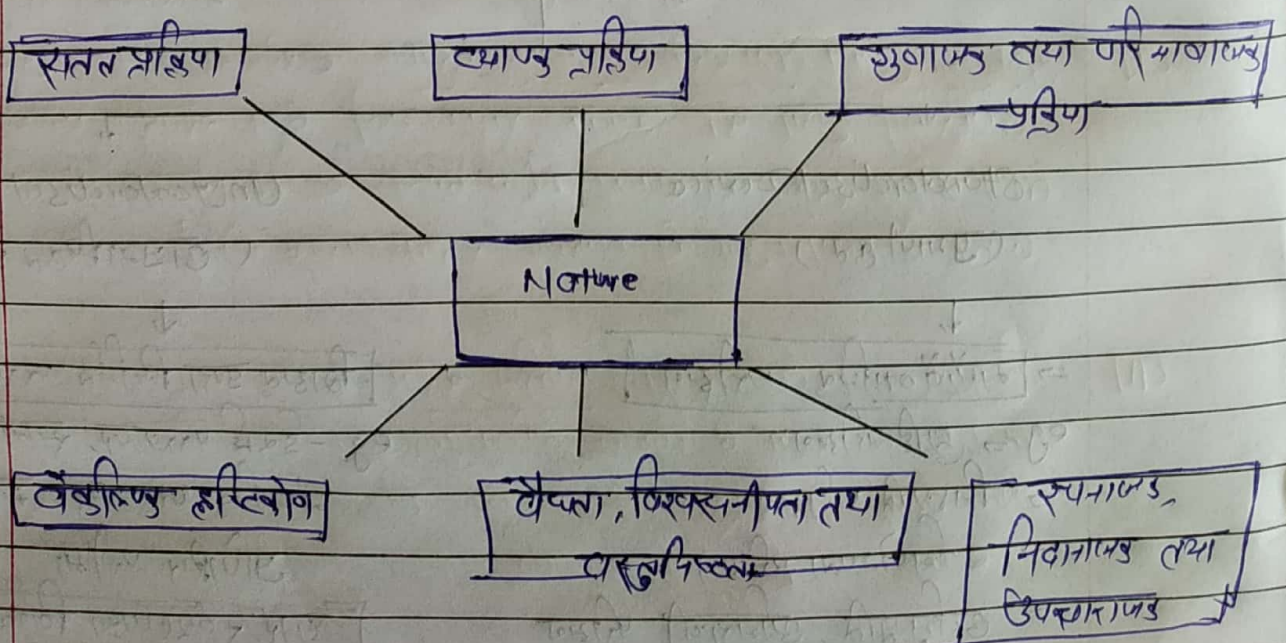 सतत प्रक्रिया
व्यापक प्रक्रिया
गुणात्मक तथा परिमाणात्मक
प्रक्रिया
Nature
वैकल्पिक दृष्टिकोण
वैधता, विश्वसनीयता तथा
वस्तुनिष्ठता
रचनात्मक,
निदानात्मक तथा
उपचारात्मक